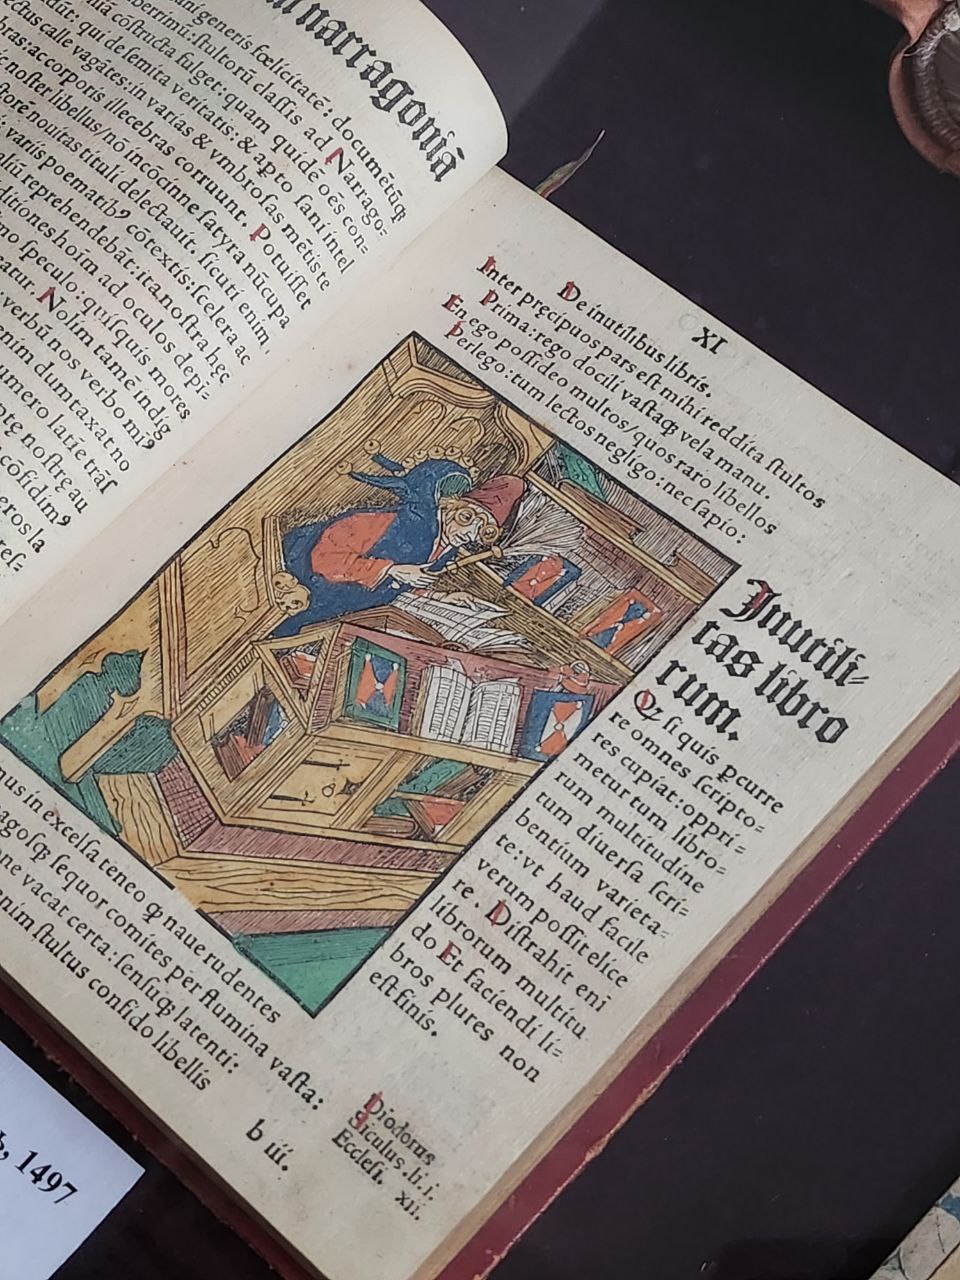 narragoniā
generis fœlicitatē: documētūq;
berrimū: stultorū classis ad Narrago=
cōstructa fulget: quam quidē oēs con=
dūt: qui de semita veritatis: & apto sani intel
ctus calle vagātes: in varias & vmbrosas mētis te
bras: ac corporis illecebras corrunt. Potuisset
noster libellus/nō incōcinne satyra nūcupa
nouitas tituli delectauit. sicuti enim,
variis poematibꝰ cōtextis: scelera ac
reprehendebāt: ita nostra hęc
ditiones hoim ad oculos depi=
speculo: quisquis mores
atur. Nolim tamē indig
verbū nos verbo miꝰ
enim dumtaxat no
umero latiē trās
nostrę au
cōfidimꝰ
eros la
ref=
XI
De inutilibus libris.
Inter pręcipuos pars est mihi reddita stultos
Prima: rego docili vastaq; vela manu.
En ego possideo multos/quos raro libellos
Perlego: tum lectos negligo: nec sapio:
Inutili=
tas libro
rum.
Q si quis ꝑcurre
re omnes scripto=
res cupiat: oppri=
metur tum libro=
rum multitudine
tum diuersa scri=
bentium varieta=
te: vt haud facile
verum possit elice
re. Distrahit eni
librorum multitu
do Et faciendi li=
bros plures non
est finis.
mus in excelsa teneo ꝙ naue rudentes
agosq; sequor comites per flumina vasta:
ne vacat certa: sensuq; latenti:
enim stultus confido libellis
Diodorus
Siculus. li. i.
Ecclesi. xii.
b iii.
b, 1497